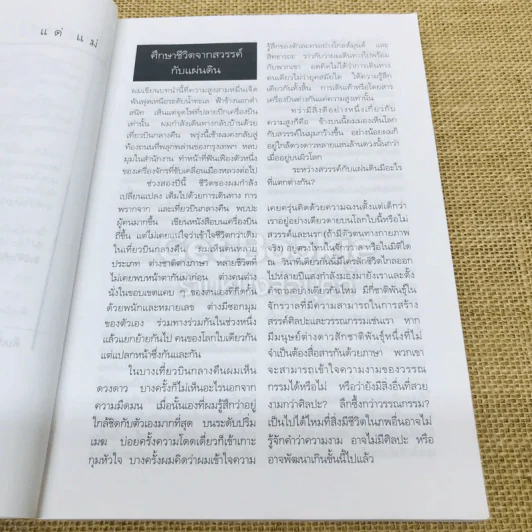 แด่ แม่
ศึกษาชีวิตจากสวรรค์
กับแผ่นดิน
ผมเขียนบทนำนี้ที่ความสูงสามหมื่นเจ็ด
พันฟุตเหนือระดับน้ำทะเล ฟ้าข้างนอกดำ
สนิท เส้นแต่จุดไฟที่ปลายปีกเครื่องบิน
เท่านั้น ผมกำลังเดินทางกลับบ้านด้วย
เที่ยวบินกลางคืน พรุ่งนี้เช้าผมคงกลับสู่
ท้องถนนที่พลุกพล่านของกรุงเทพฯ หลบ
มุมในสำนักงาน ทำหน้าที่ฟันเฟืองตัวหนึ่ง
ของเครื่องจักรที่ขับเคลื่อนเมืองหลวงต่อไป
ช่วงสองปีนี้ ชีวิตของผมกำลัง
เปลี่ยนแปลง เต็มไปด้วยการเดินทาง การ
พรากจาก และเที่ยวบินกลางคืน พบปะ
ผู้คนมากขึ้น เขียนหนังสือบนเครื่องบิน
ถี่ขึ้น แต่ไม่เคยแน่ใจว่าเข้าใจชีวิตกว่าเดิม
ในเที่ยวบินกลางคืน ร่วมเห็นคนหลาย
ประเภท ต่างชาติต่างภาษา หลายชีวิตที่
ไม่เคยพบหน้าตากันมาก่อน ต่างคนต่าง
นั่งในขอบเขตแคบ ๆ ของตนเองที่กีดกั้น
ด้วยพนักและหมายเลข ต่างมีซอกมุม
ของตัวเอง ร่วมทางร่วมกันในช่วงหนึ่ง
แล้วแยกย้ายกันไป คนของโลกใบเดียวกัน
แต่แปลกหน้าซึ่งกันและกัน
ในบางเที่ยวบินกลางคืนผมเห็น
ดวงดาว บางครั้งก็ไม่เห็นอะไรนอกจาก
ความมืดมน เมื่อนั้นเองที่ผมรู้สึกว่าอยู่
ใกล้ชิดกับตัวเองมากที่สุด บนระดับปริ่ม
เมฆ บ่อยครั้งความโดดเดี่ยวก็เข้าเกาะ
กุมหัวใจ บางครั้งผมคิดว่าผมเข้าใจความ
รู้สึกของตัวละคร
และ
กับพวกเขา อดคิดไม่ได้ว่าการเดินทาง
คนเดียวไม่ว่ายุคสมัยใด ให้ความรู้สึก
เดียวกันทั้งสิ้น การเดินเท้าหรือโดยสาร
เครื่องบินต่างกันแค่ความสูงเท่านั้น
ทว่ามีสิ่งดีอย่างหนึ่งเกี่ยวกับ
ความสูงก็คือ ข้างบนนี้ผมมองเห็นโลก
กับสวรรค์ในมุมกว้างขึ้น อย่างน้อยผมก็
อยู่ใกล้ดวงดาวหลายแสนล้านดวงนั้นกว่า
เมื่ออยู่บนผิวโลก
ระหว่างสวรรค์กับแผ่นดินมีอะไร
ที่แตกต่างกัน?
เคยครุ่นคิดด้วยความฉงนตั้งแต่เด็กว่า
เราอยู่อย่างเดียวดายบนโลกใบนี้หรือไม่
สวรรค์และนรก (ถ้ามีตัวตนทางกายภาพ
จริง) อยู่ตรงไหนในจักรวาล หรือในมิติใด
ณ วินาทีเดียวกันนี้มีใครสักชีวิตไกลออก
ไปห้าสิบปีแสงกำลังมองมายังเราและตั้ง
คำถามอย่างเดียวกันไหม มีกี่ชาติพันธุ์ใน
จักรวาลที่มีความสามารถในการสร้าง
สรรค์ศิลปะและวรรณกรรมเช่นเรา หาก
มีมนุษย์ต่างดาวสักชาติพันธุ์หนึ่งที่ไม่
จำเป็นต้องสื่อสารกันด้วยภาษา พวกเขา
จะสามารถเข้าใจความงามของวรรณ
กรรมได้หรือไม่ หรือว่ายังมีสิ่งอื่นที่สวย
งามกว่าศิลปะ? ลึกซึ้งกว่าวรรณกรรม?
เป็นไปได้ไหมที่สิ่งมีชีวิตในภพอื่นอาจไม่
รู้จักคำว่าความงาม อาจไม่มีศิลปะ หรือ
อาจพัฒนาเกินขั้นนี้ไปแล้ว